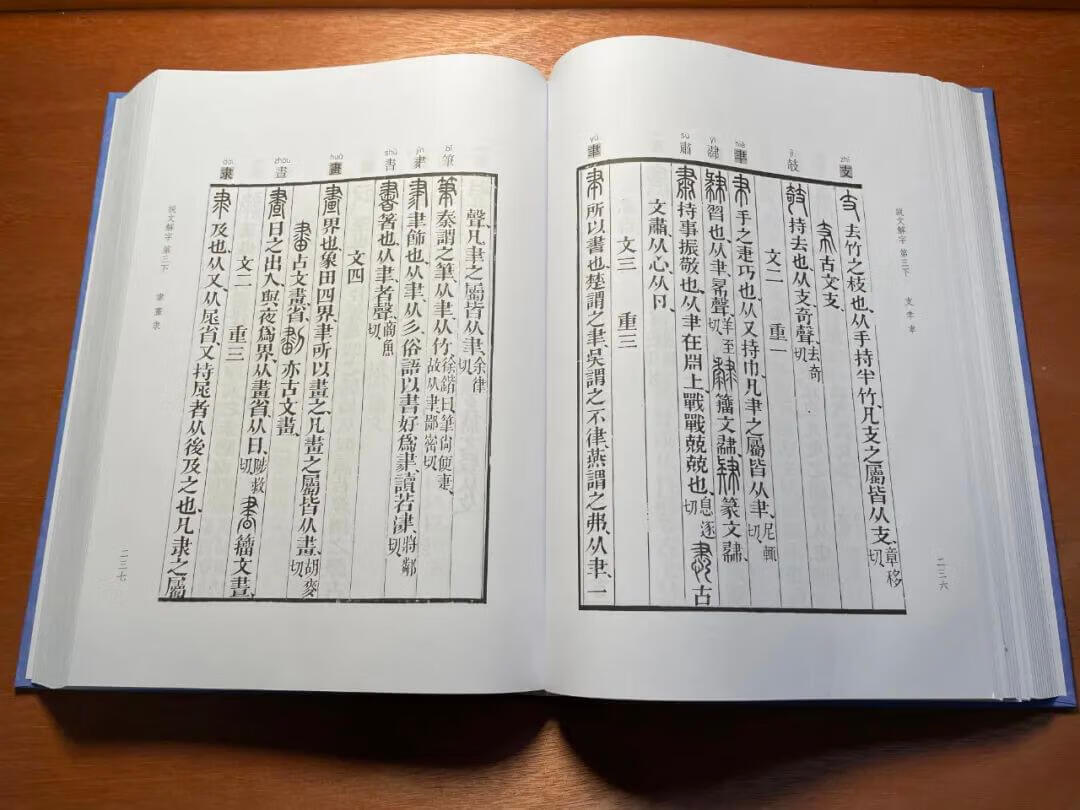 說文解字 第三下 支 𦘒 聿
二三六
zhī 支
支 去竹之枝也从手持半竹凡支之屬皆从支章移切
古文支
qī 攲
攲 持去也从支奇聲去奇切
文二 重一
niè 𦘒
𦘒 手之疌巧也从又持巾凡𦘒之屬皆从𦘒尼輒切
yì 肄
肄 習也从𦘒㣇聲羊至切 籒文肄 篆文肄
sù 肅
肅 持事振敬也从𦘒在𣶒上戰戰兢兢也息逐切 古
文肅从心从卪
文三 重三
yù 聿
聿 所以書也楚謂之聿吳謂之不律燕謂之弗从𦘒一
聲凡聿之屬皆从聿余律切
bǐ 筆
筆 秦謂之筆从聿从竹徐鍇曰筆尚便疌故从聿鄙密切
jīn 𦘔
𦘔 聿飾也从聿从彡俗語以書好爲𦘔讀若津將鄰切
shū 書
書 箸也从聿者聲商魚切
文四
huà 畫
畫 界也象田四界聿所以畫之凡畫之屬皆从畫胡麥切
古文畫省 亦古文畫
zhòu 晝
晝 日之出入與夜爲界从畫省从日陟救切 籒文晝
文二 重三
dài 隶
隶 及也从又从尾省又持尾者从後及之也凡隶之屬
說文解字 第三下 聿 畫 隶
二三七